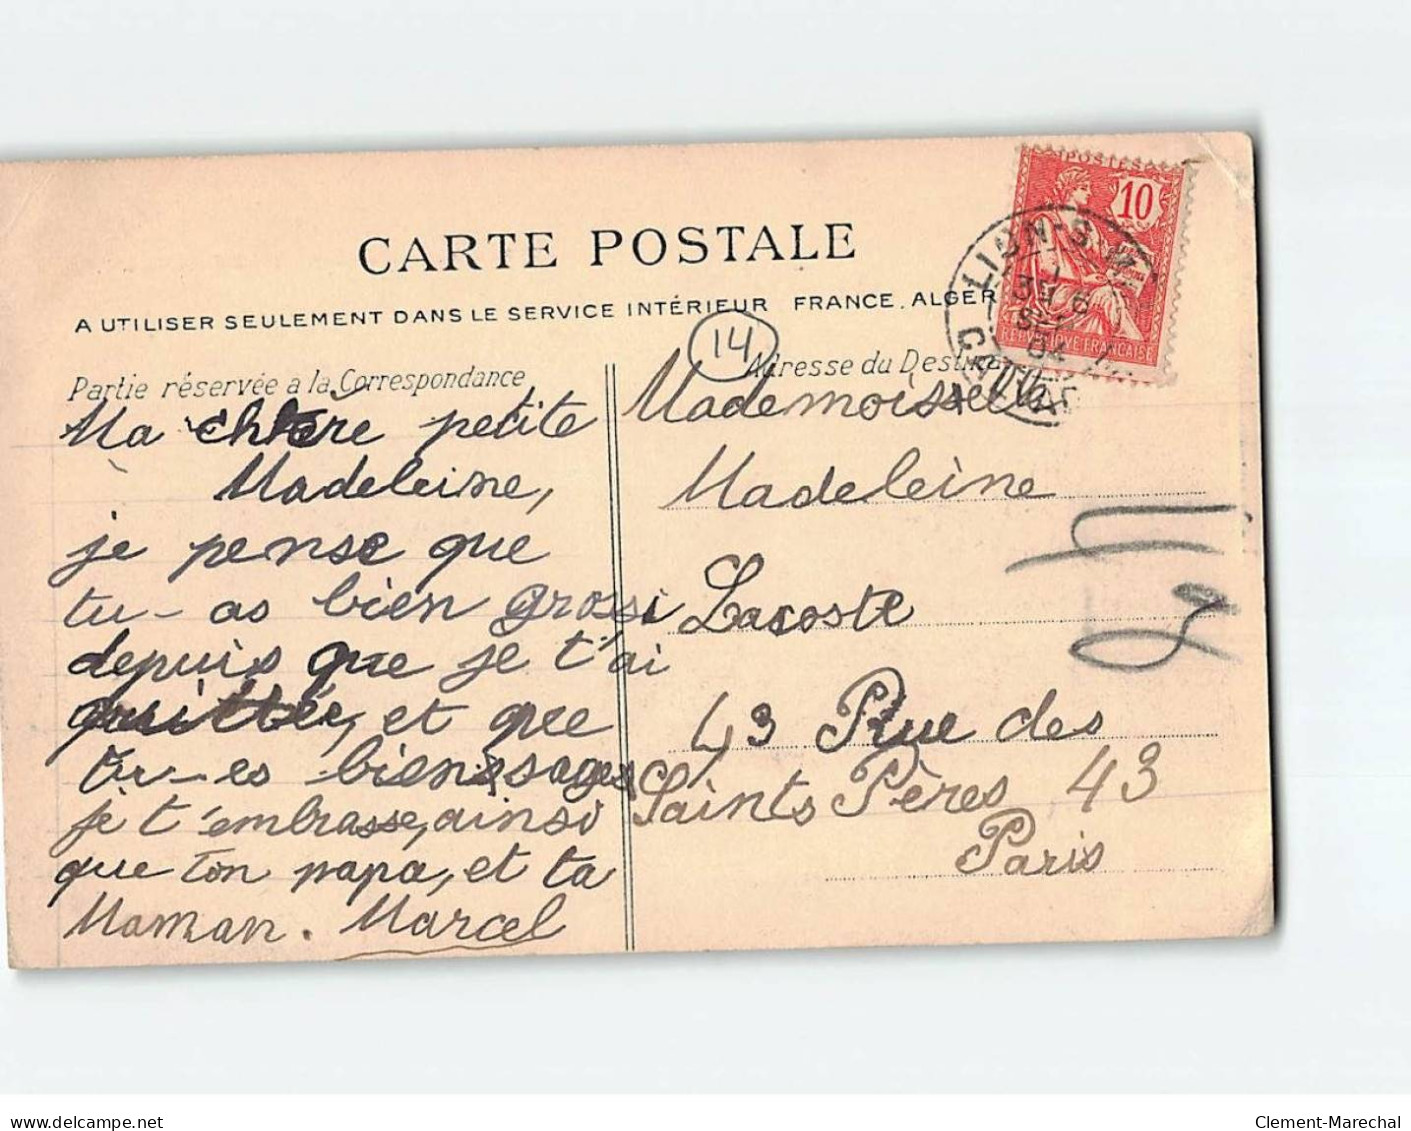 CARTE POSTALE
A UTILISER SEULEMENT DANS LE SERVICE INTÉRIEUR FRANCE. ALGER
14
Partie réservée a la Correspondance
Ma chère petite
Madeleine,
je pense que
tu-as bien grossi
depuis que je t'ai
quittée, et que
tu-es bien sage,
je t'embrasse, ainsi
que ton papa, et ta
Maman. Marcel
Adresse du Destina
Mademoiselle
Madeleine
Lacoste
43 Rue des
Saints Pères 43
Paris
POSTES
10
RÉPUBLIQUE FRANÇAISE
LION-S
6
04
www.delcampe.net
Clement-Marechal